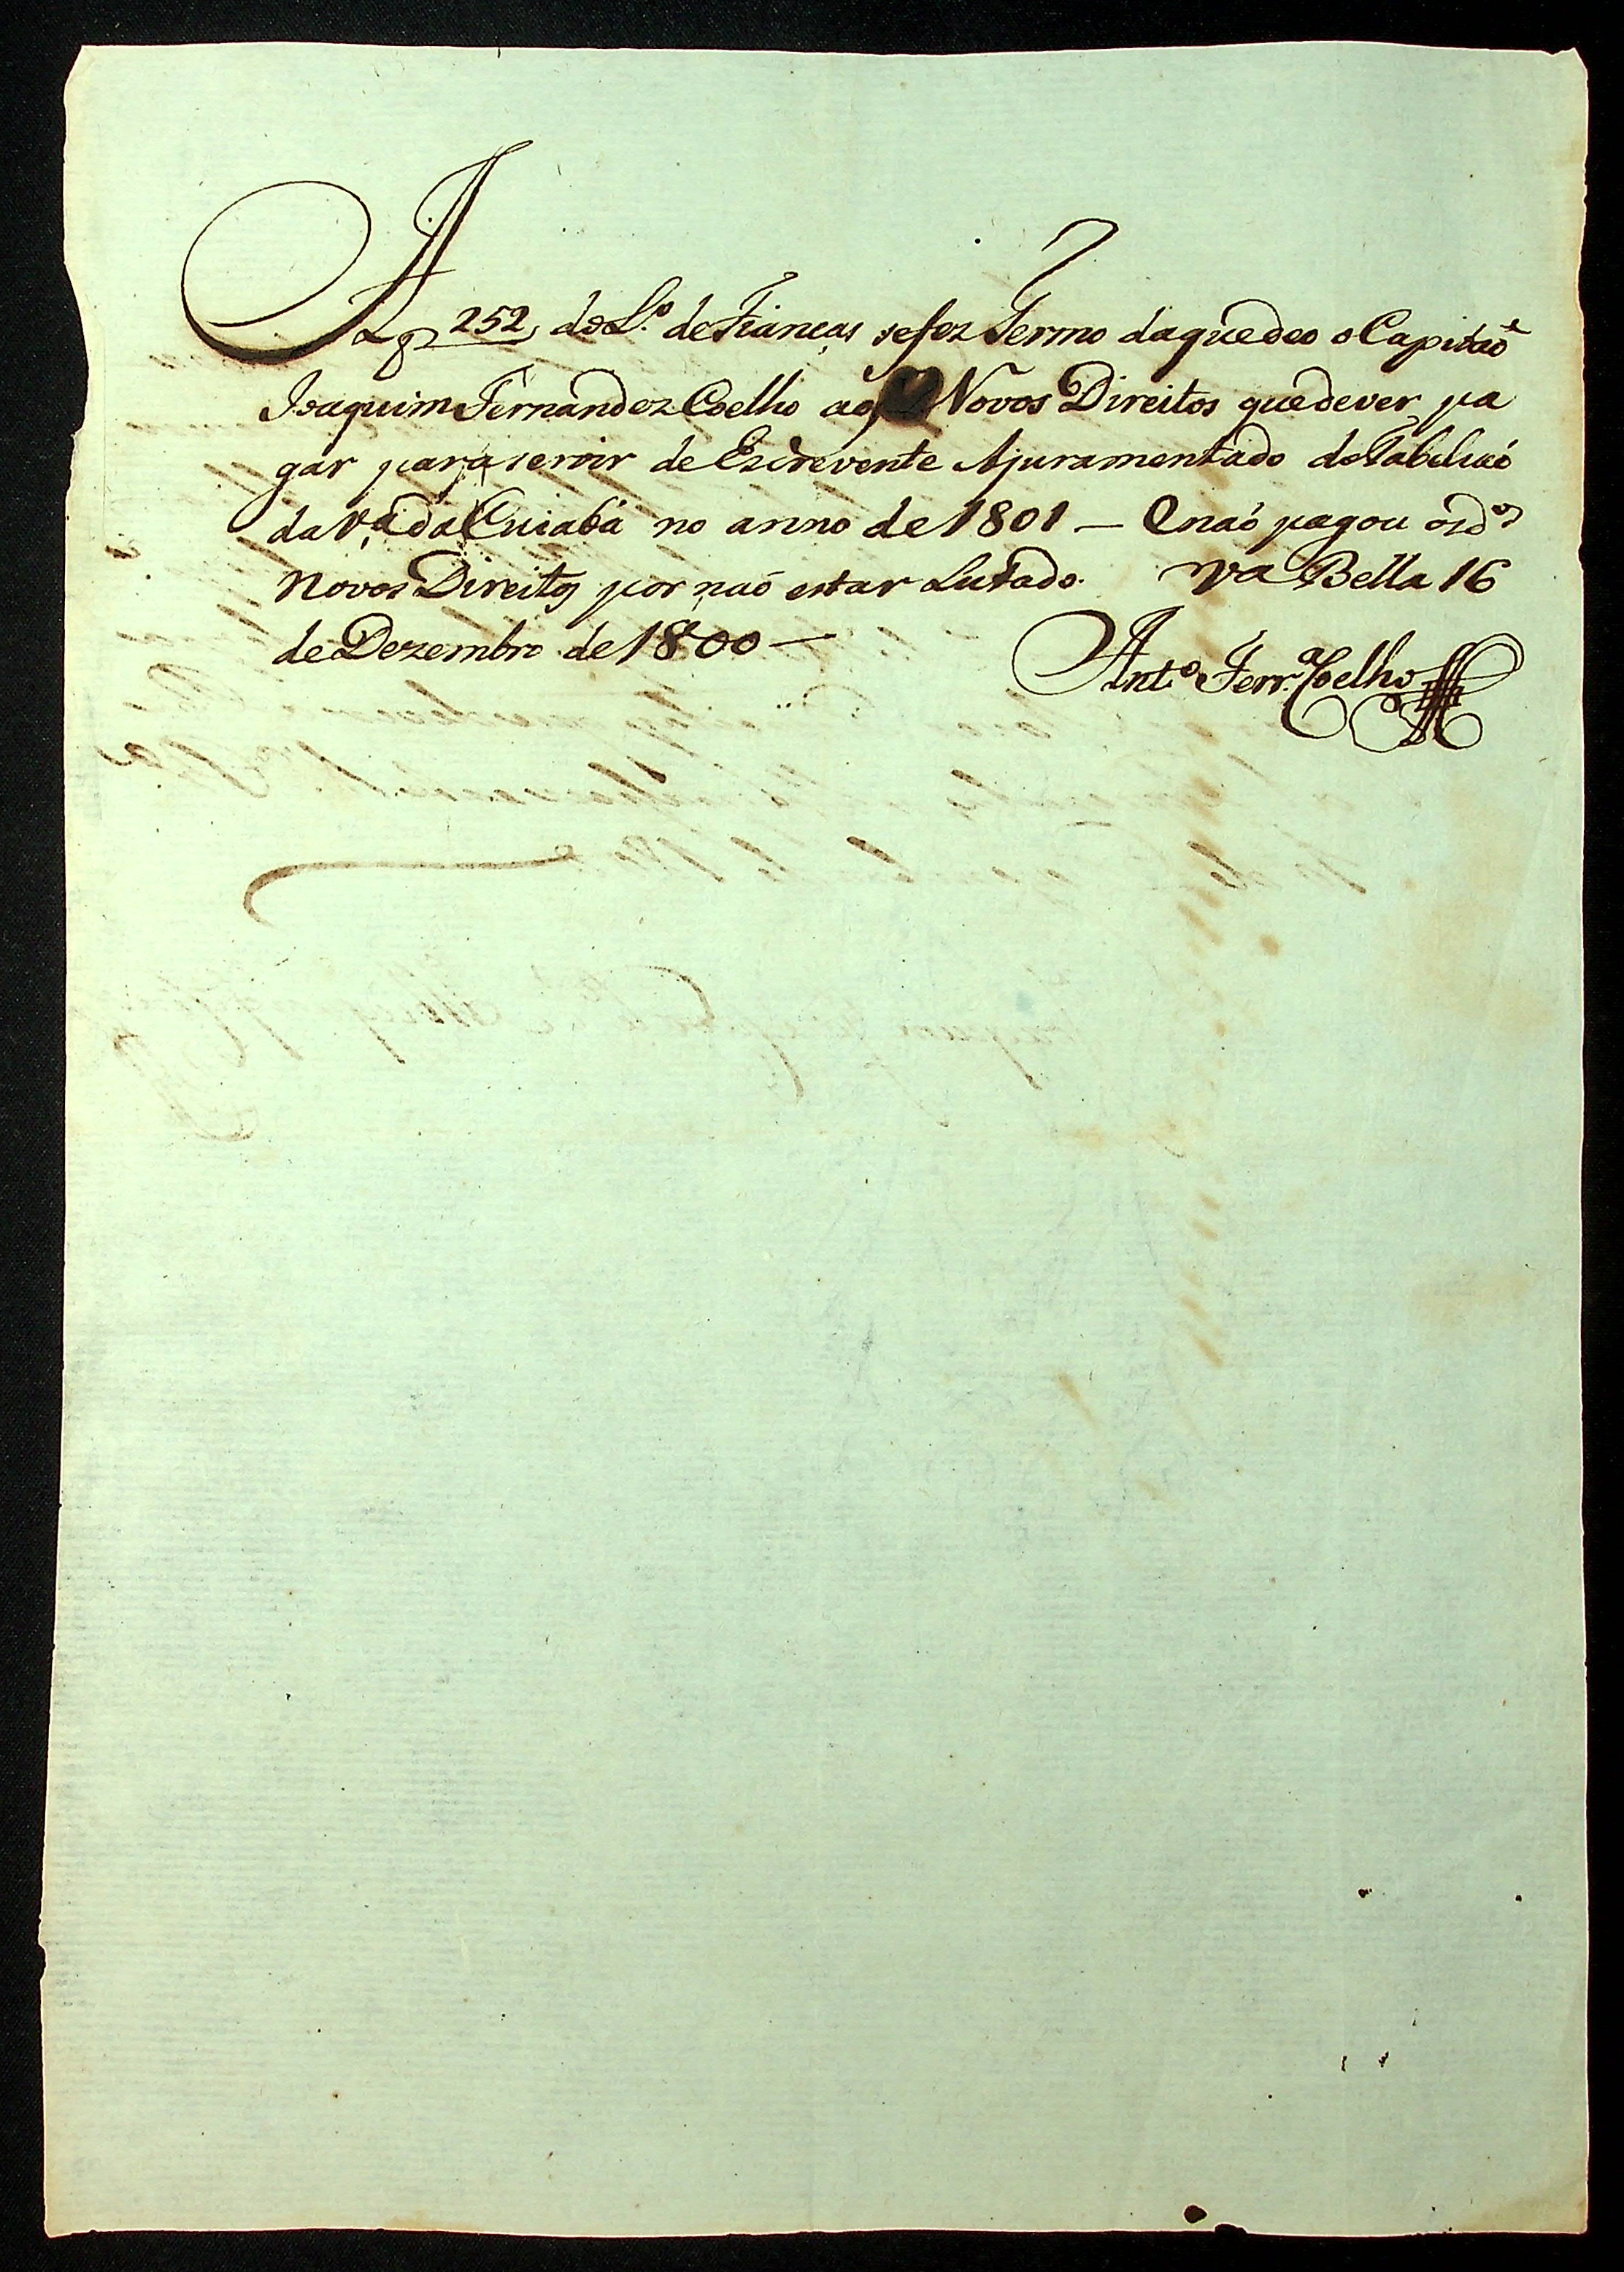 A f 252, do L.º de Fianças se fez Termo da que deo o Capitaõ
Joaquim Fernandez Coelho aos Novos Direitos que dever pa
gar para servir de Escrevente Ajuramentado do Tabeliaó
da V.ª do Cuiabá no anno de 1801 — E naó pagou os d.os
Novos Direitos por naó estar Lutado. V.ª Bella 16
de Dezembro de 1800 —
Ant.º Ferr.ª Coelho